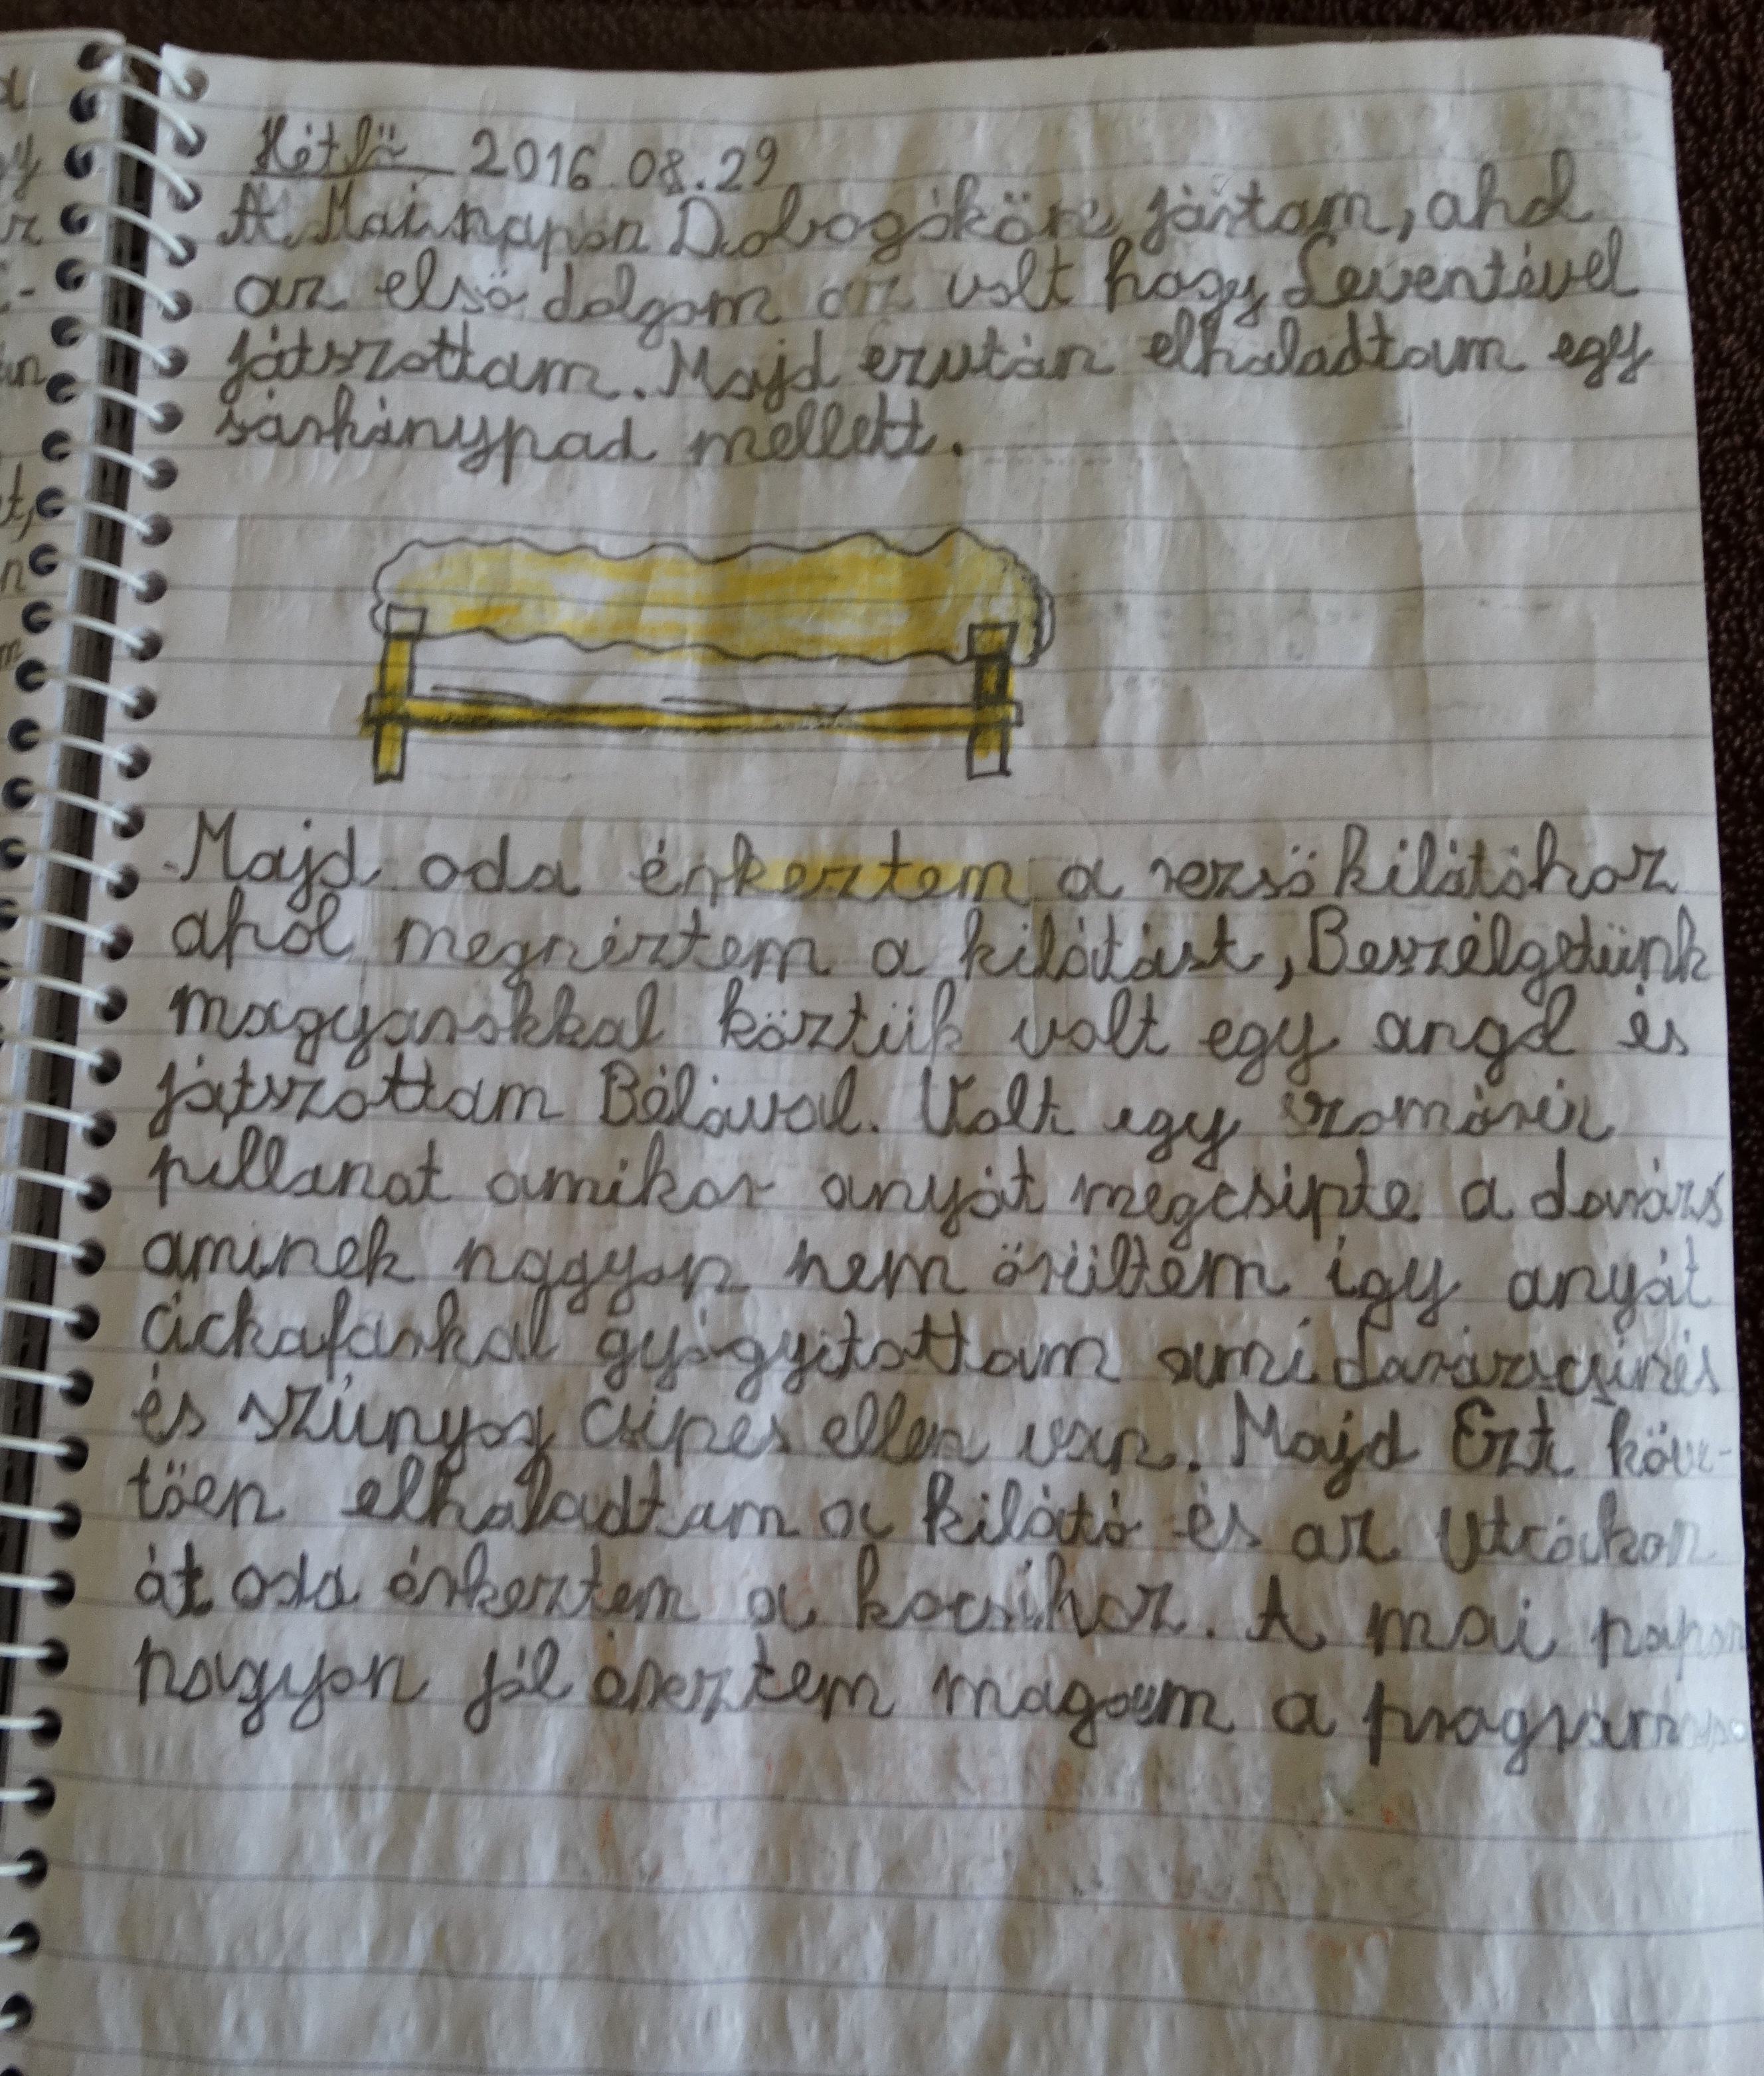 Hétfő 2016.08.29
A Mai napon Dobogókőn jártam, ahol
az első dolgom az volt hogy Leventével
játszottam. Majd ezután elhaladtam egy
sárkánypad mellett.
Majd oda érkeztem a rezsőkilátóhoz
ahol megnéztem a kilátást, Beszélgetünk
magyarokkal köztük volt egy angol és
játszottam Bélával. Volt egy szomórú
pillanat amikor anyát megcsípte a darázs
aminek nagyon nem örültem így anyát
cickafarkal gyógyítottam ami darázscsípés
és szúnyog csípés ellen van. Majd Ezt köve-
tően elhaladtam a kilátó és az Utcákon
át oda érkeztem a kocsihoz. A mai napon
nagyon jól éreztem magam a